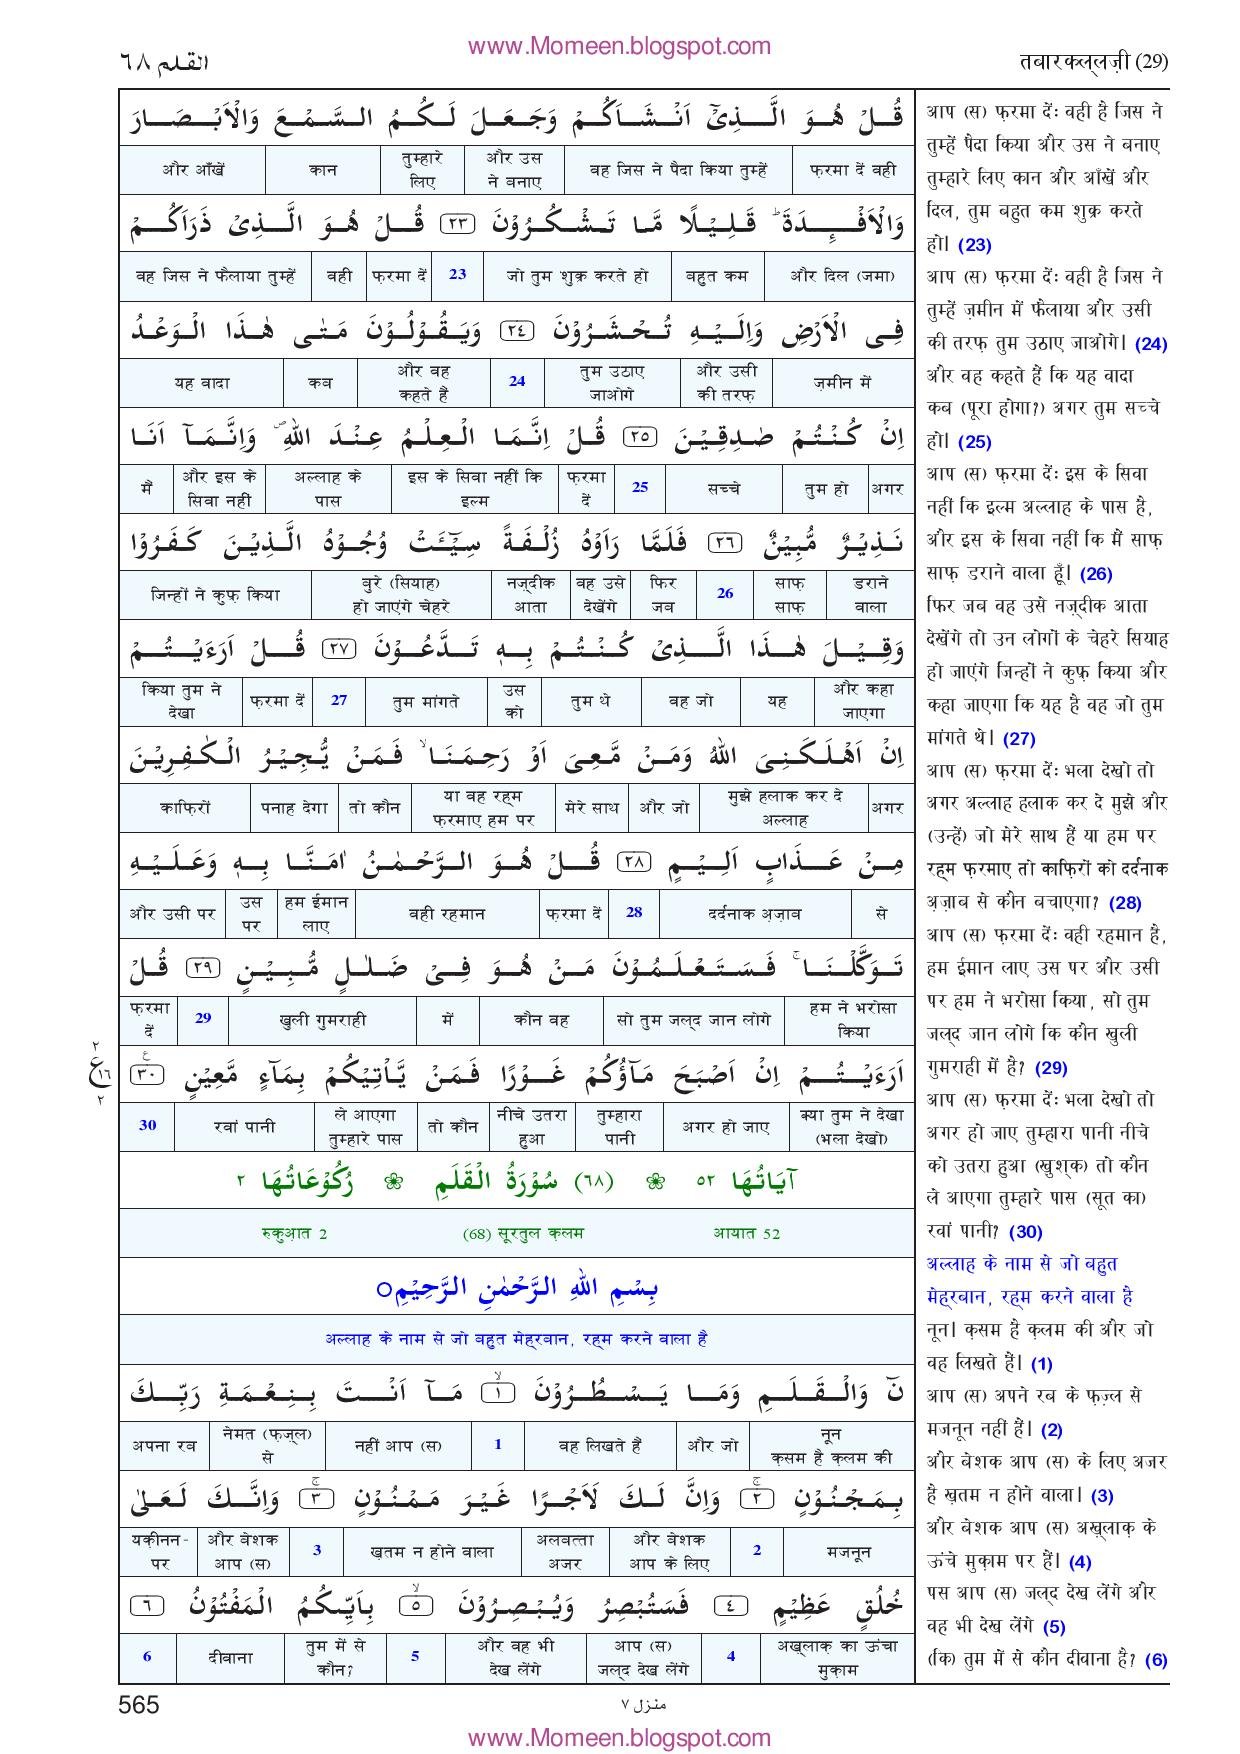 www.Momeen.blogspot.com
القلم ٦٨
तबारकल्लज़ी (29)
قُلْ هُوَ الَّذِیْۤ اَنْشَاَكُمْ وَجَعَلَ لَكُمُ السَّمْعَ وَالْاَبْصَارَ
फ़रमा दें वही | वह जिस ने पैदा किया तुम्हें | और उस ने बनाए | तुम्हारे लिए | कान | और आँखें
وَالْاَفْـِٕدَةَ ؕ قَلِیْلًا مَّا تَشْكُرُوْنَ ٢٣ قُلْ هُوَ الَّذِیْ ذَرَاَكُمْ
और दिल (जमा) | बहुत कम | जो तुम शुक्र करते हो | 23 | फ़रमा दें | वही | वह जिस ने फैलाया तुम्हें
فِی الْاَرْضِ وَاِلَیْهِ تُحْشَرُوْنَ ٢٤ وَیَقُوْلُوْنَ مَتٰی هٰذَا الْوَعْدُ
ज़मीन में | और उसी की तरफ़ | तुम उठाए जाओगे | 24 | और वह कहते हैं | कब | यह वादा
اِنْ كُنْتُمْ صٰدِقِیْنَ ٢٥ قُلْ اِنَّمَا الْعِلْمُ عِنْدَ اللّٰهِ ۪ وَاِنَّمَاۤ اَنَا
अगर | तुम हो | सच्चे | 25 | फ़रमा दें | इस के सिवा नहीं कि इल्म | अल्लाह के पास | और इस के सिवा नहीं | मैं
نَذِیْرٌ مُّبِیْنٌ ٢٦ فَلَمَّا رَاَوْهُ زُلْفَةً سِیْٓـَٔتْ وُجُوْهُ الَّذِیْنَ كَفَرُوْا
डराने वाला | साफ़ साफ़ | 26 | फिर जब | वह उसे देखेंगे | नज़्दीक आता | बुरे (सियाह) हो जाएंगे चेहरे | जिन्हों ने कुफ़ किया
وَقِیْلَ هٰذَا الَّذِیْ كُنْتُمْ بِهٖ تَدَّعُوْنَ ٢٧ قُلْ اَرَءَیْتُمْ
और कहा जाएगा | यह | वह जो | तुम थे | उस को | तुम मांगते | 27 | फ़रमा दें | किया तुम ने देखा
اِنْ اَهْلَكَنِیَ اللّٰهُ وَمَنْ مَّعِیَ اَوْ رَحِمَنَا ۙ فَمَنْ یُّجِیْرُ الْكٰفِرِیْنَ
अगर | मुझे हलाक कर दे अल्लाह | और जो | मेरे साथ | या वह रह्म फ़रमाए हम पर | तो कौन | पनाह देगा | काफ़िरों
مِنْ عَذَابٍ اَلِیْمٍ ٢٨ قُلْ هُوَ الرَّحْمٰنُ اٰمَنَّا بِهٖ وَعَلَیْهِ
से | दर्दनाक अज़ाब | 28 | फ़रमा दें | वही रहमान | हम ईमान लाए | उस पर | और उसी पर
تَوَكَّلْنَا ۚ فَسَتَعْلَمُوْنَ مَنْ هُوَ فِیْ ضَلٰلٍ مُّبِیْنٍ ٢٩ قُلْ
हम ने भरोसा किया | सो तुम जल्द जान लोगे | कौन वह | में | खुली गुमराही | 29 | फ़रमा दें
اَرَءَیْتُمْ اِنْ اَصْبَحَ مَآؤُكُمْ غَوْرًا فَمَنْ یَّاْتِیْكُمْ بِمَآءٍ مَّعِیْنٍ ٣٠
٢ ع ١٦ ٢
क्या तुम ने देखा (भला देखो) | अगर हो जाए | तुम्हारा पानी | नीचे उतरा हुआ | तो कौन | ले आएगा तुम्हारे पास | रवां पानी | 30
آیَاتُهَا ٥٢ ❀ (٦٨) سُوْرَةُ الْقَلَمِ ❀ رُكُوْعَاتُهَا ٢
रुकुआ़त 2 (68) सूरतुल क़लम आयात 52
بِسْمِ اللّٰهِ الرَّحْمٰنِ الرَّحِیْمِ
अल्लाह के नाम से जो बहुत मेह्रबान, रह्म करने वाला है
نٓ وَالْقَلَمِ وَمَا یَسْطُرُوْنَ ۙ ١ مَاۤ اَنْتَ بِنِعْمَةِ رَبِّكَ
नून क़सम है क़लम की | और जो | वह लिखते हैं | 1 | नहीं आप (स) | नेमत (फ़ज़्ल) से | अपना रब
بِمَجْنُوْنٍ ۚ ٢ وَاِنَّ لَكَ لَاَجْرًا غَیْرَ مَمْنُوْنٍ ۚ ٣ وَاِنَّكَ لَعَلٰی
मजनून | 2 | और बेशक आप के लिए | अलबत्ता अजर | ख़तम न होने वाला | 3 | और बेशक आप (स) | यक़ीनन-पर
خُلُقٍ عَظِیْمٍ ٤ فَسَتُبْصِرُ وَیُبْصِرُوْنَ ۙ ٥ بِاَیِّىكُمُ الْمَفْتُوْنُ ٦
अख़्लाक़ का ऊंचा मुक़ाम | 4 | आप (स) जल्द देख लेंगे | और वह भी देख लेंगे | 5 | तुम में से कौन? | दीवाना | 6
आप (स) फ़रमा दें: वही है जिस ने
तुम्हें पैदा किया और उस ने बनाए
तुम्हारे लिए कान और आँखें और
दिल, तुम बहुत कम शुक्र करते
हो। (23)
आप (स) फ़रमा दें: वही है जिस ने
तुम्हें ज़मीन में फैलाया और उसी
की तरफ़ तुम उठाए जाओगे। (24)
और वह कहते हैं कि यह वादा
कब (पूरा होगा?) अगर तुम सच्चे
हो। (25)
आप (स) फ़रमा दें: इस के सिवा
नहीं कि इल्म अल्लाह के पास है,
और इस के सिवा नहीं कि मैं साफ़
साफ़ डराने वाला हूँ। (26)
फिर जब वह उसे नज़्दीक आता
देखेंगे तो उन लोगों के चेहरे सियाह
हो जाएंगे जिन्हों ने कुफ़ किया और
कहा जाएगा कि यह है वह जो तुम
मांगते थे। (27)
आप (स) फ़रमा दें: भला देखो तो
अगर अल्लाह हलाक कर दे मुझे और
(उन्हें) जो मेरे साथ हैं या हम पर
रह्म फ़रमाए तो काफ़िरों को दर्दनाक
अ़ज़ाब से कौन बचाएगा? (28)
आप (स) फ़रमा दें: वही रहमान है,
हम ईमान लाए उस पर और उसी
पर हम ने भरोसा किया, सो तुम
जल्द जान लोगे कि कौन खुली
गुमराही में है? (29)
आप (स) फ़रमा दें: भला देखो तो
अगर हो जाए तुम्हारा पानी नीचे
को उतरा हुआ (खुश्क) तो कौन
ले आएगा तुम्हारे पास (सूत का)
रवां पानी? (30)
अल्लाह के नाम से जो बहुत
मेह्रबान, रह्म करने वाला है
नून। क़सम है क़लम की और जो
वह लिखते हैं। (1)
आप (स) अपने रब के फ़ज़्ल से
मजनून नहीं हैं। (2)
और बेशक आप (स) के लिए अजर
है ख़तम न होने वाला। (3)
और बेशक आप (स) अख़्लाक़ के
ऊंचे मुक़ाम पर हैं। (4)
पस आप (स) जल्द देख लेंगे और
वह भी देख लेंगे (5)
(कि) तुम में से कौन दीवाना है? (6)
565
منزل ٧
www.Momeen.blogspot.com